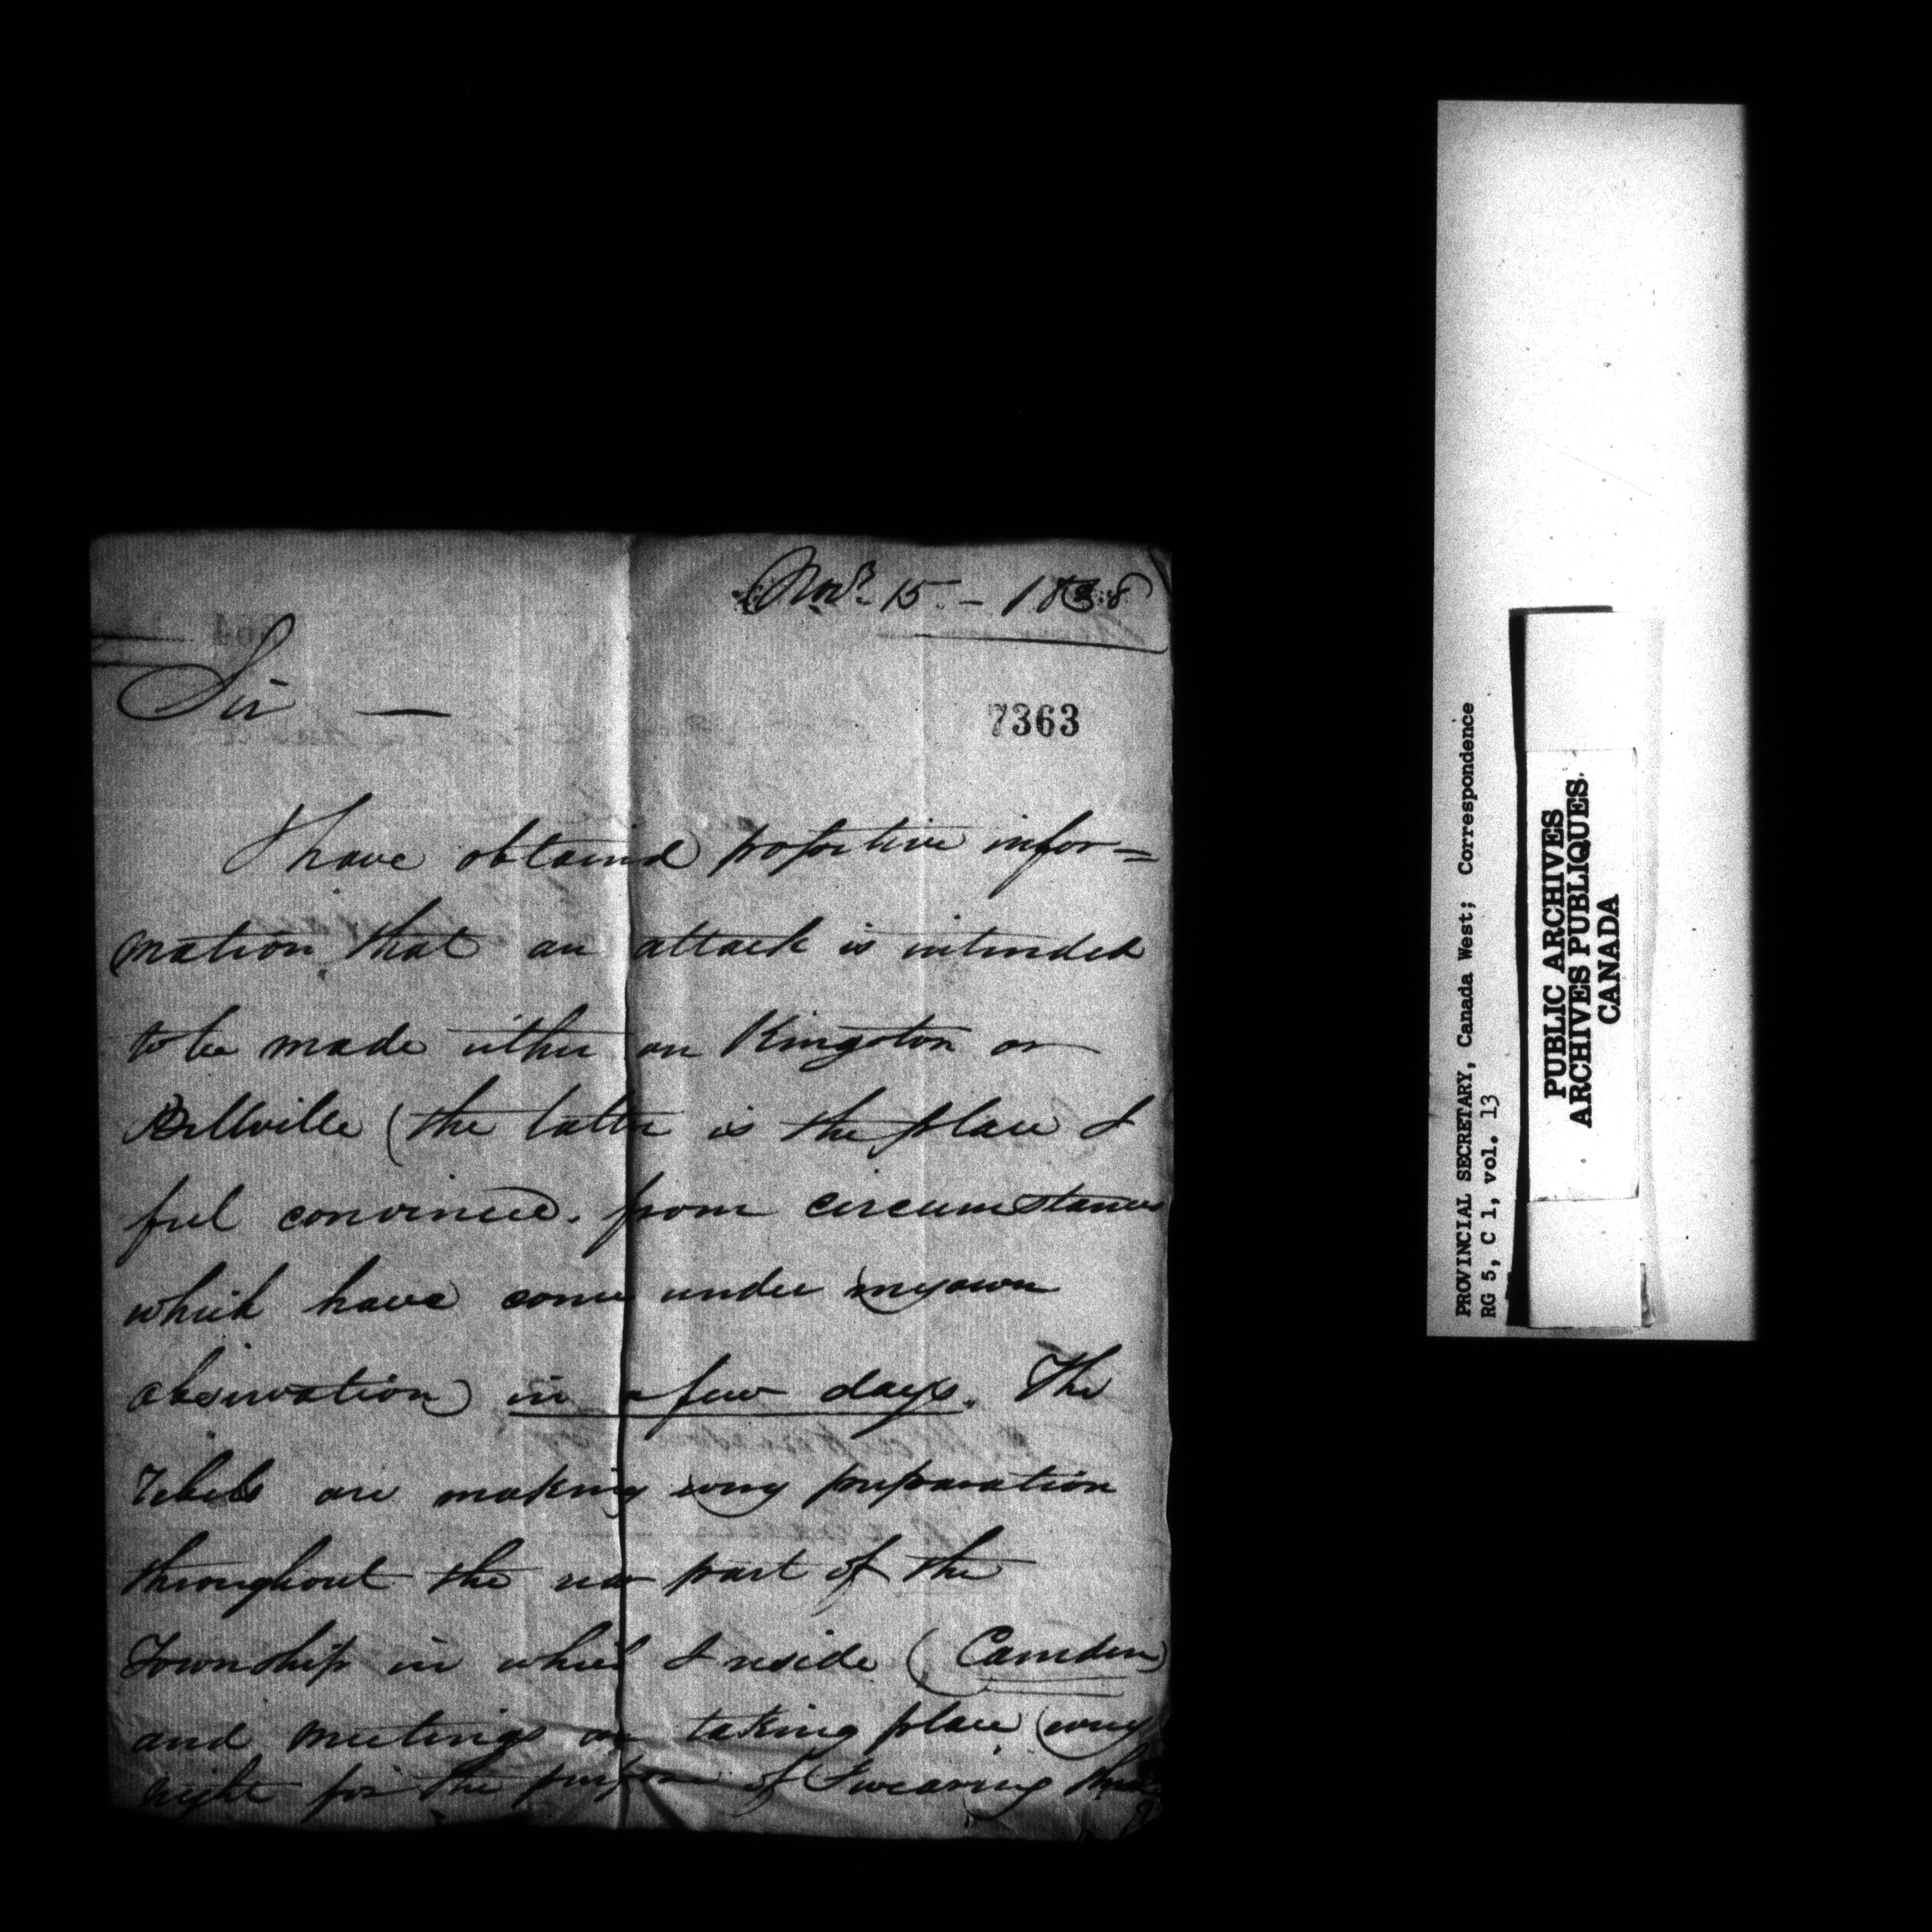 Novr. 15. - 1838
Sir —
7363
I have obtaind positive infor=
mation that an attack is intended
to be made either on Kingston or
Bellville (the latter is the place I
feel convinced, from circumstances
which have come under my own
observation) in a few days. The
rebels are making every preparation
throughout the rear part of the
Township in which I reside (Camden)
and meetings are taking place every
night for the purpose of Swearing
PROVINCIAL SECRETARY, Canada West; Correspondence
RG 5, C 1, vol. 13
PUBLIC ARCHIVES
ARCHIVES PUBLIQUES
CANADA